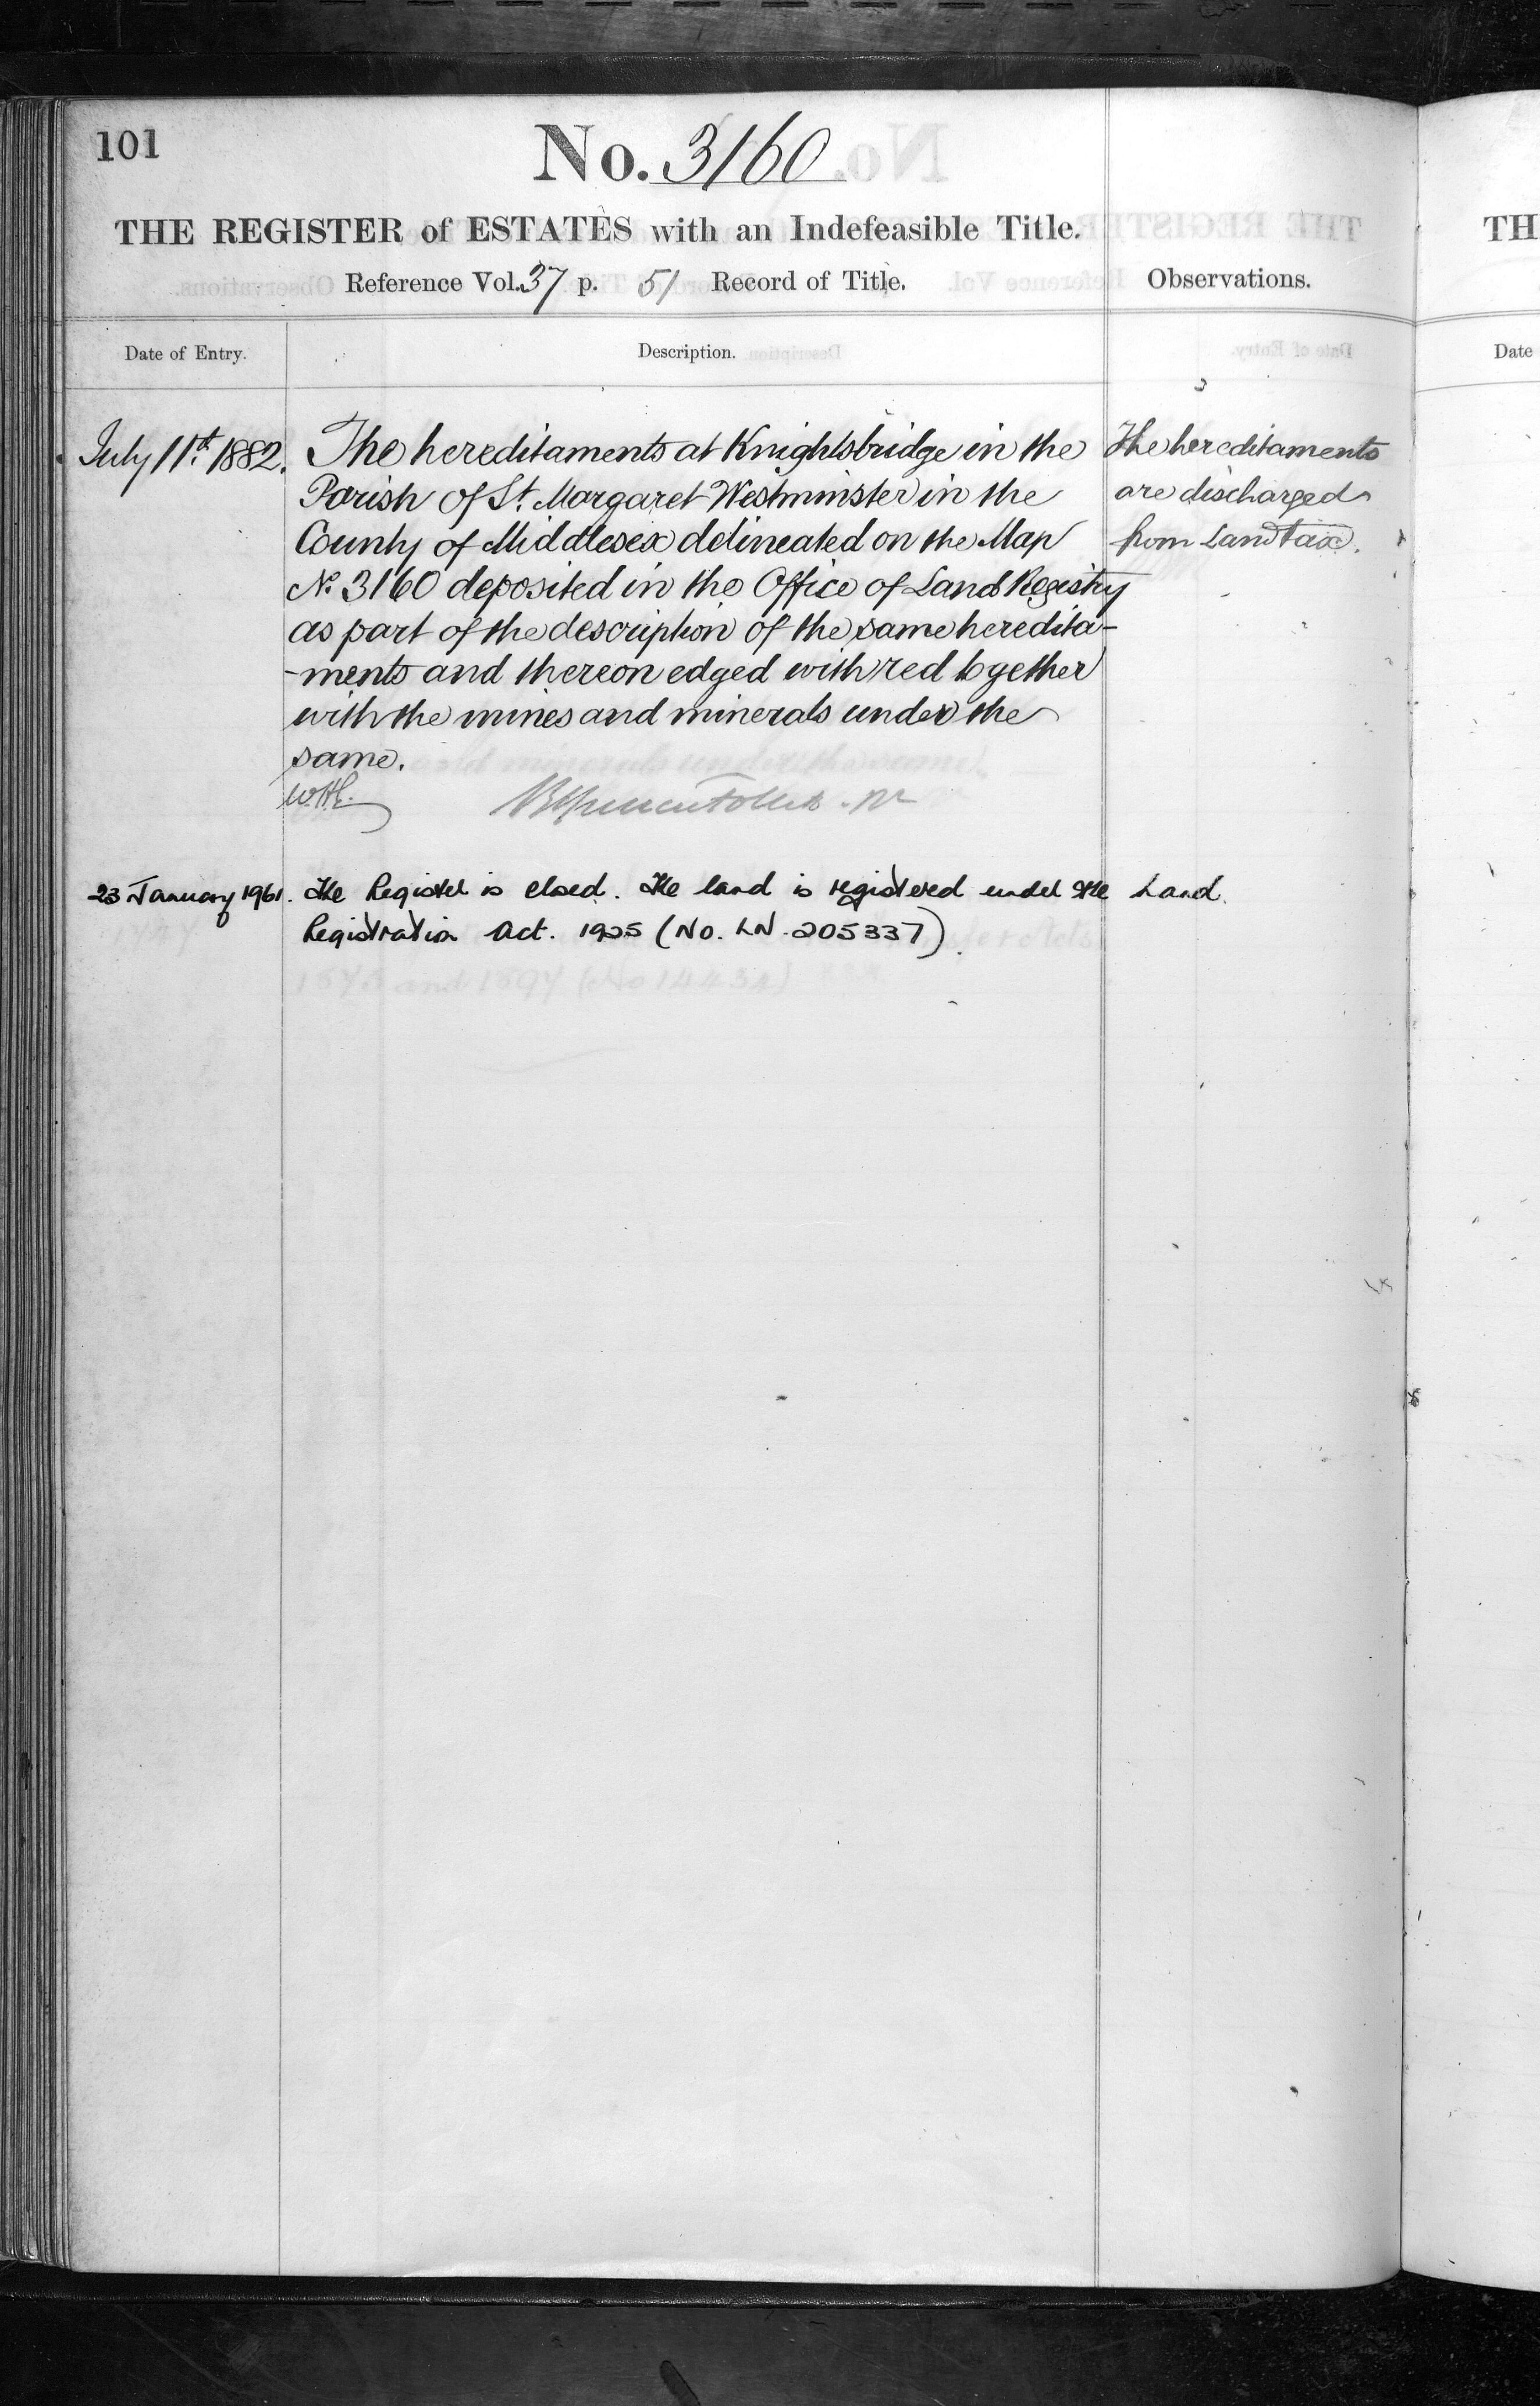 101
No. 3160
THE REGISTER of ESTATES with an Indefeasible Title.
Reference Vol. 37 p. 51 Record of Title.
Observations.
Date of Entry.
Description.
July 11th 1882.
The hereditaments at Knightsbridge in the
Parish of St. Margaret Westminster in the
County of Middlesex delineated on the Map
No. 3160 deposited in the Office of Land Registry
as part of the description of the same heredita-
-ments and thereon edged with red together
with the mines and minerals under the
same.
The hereditaments
are discharged
from Land tax.
23 January 1961.
The Register is closed. The land is registered under the Land
Registration Act. 1925 (No. LN. 205337).
TH
Date